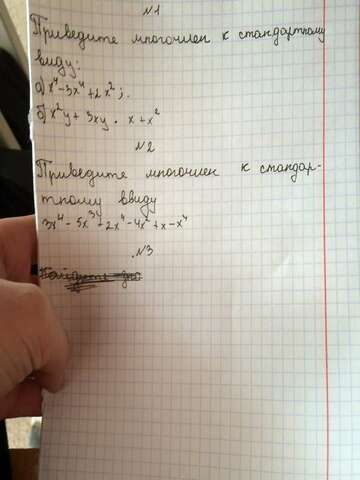 N1
Приведите многочлен к стандартному
виду:
а) x⁴-3x⁴+2x²;
б) x²y + 3xy · x+x²
N2
Приведите многочлен к стандар-
тному ввиду
3x⁴ - 5x³ - 2x⁴ - 4x² + x - x⁴
N3